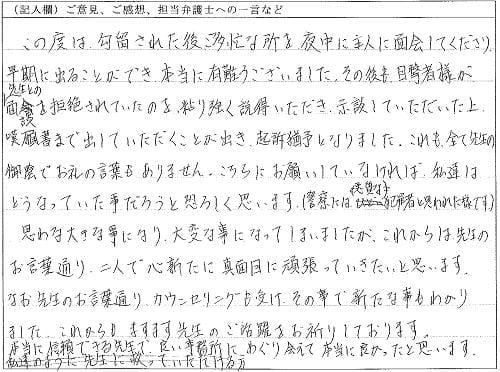 （記入欄）ご意見、ご感想、担当弁護士への一言など
この度は、勾留された後ご多忙な所を夜中に主人に面会してくださり、
早期に出ることができ本当に有難うございました。その後も目撃者様が
先生との
面談を拒絶されていたのを、粘り強く説得いただき、示談していただいた上、
嘆願書まで出していただくことが出き、起訴猶予となりました。これも全て先生の
御蔭でお礼の言葉もありません。こちらにお願いしていなければ、私達は
どうなっていた事だろうと恐ろしく思います。（警察には、 犯罪者と思われた様です）
思わぬ大きな事になり、大変な事になってしまいましたが、これからは先生の
お言葉通り、二人で心新たに真面目に頑張っていきたいと思います。
なお先生のお言葉通り、カウンセリングも受け、その事で新たな事もわかり
ました。これからも、ますます先生のご活躍をお祈りしております。
本当に信頼できる先生で、良い事務所に、めぐり会えて本当に良かったと思います。
私達のように先生に救っていただける方